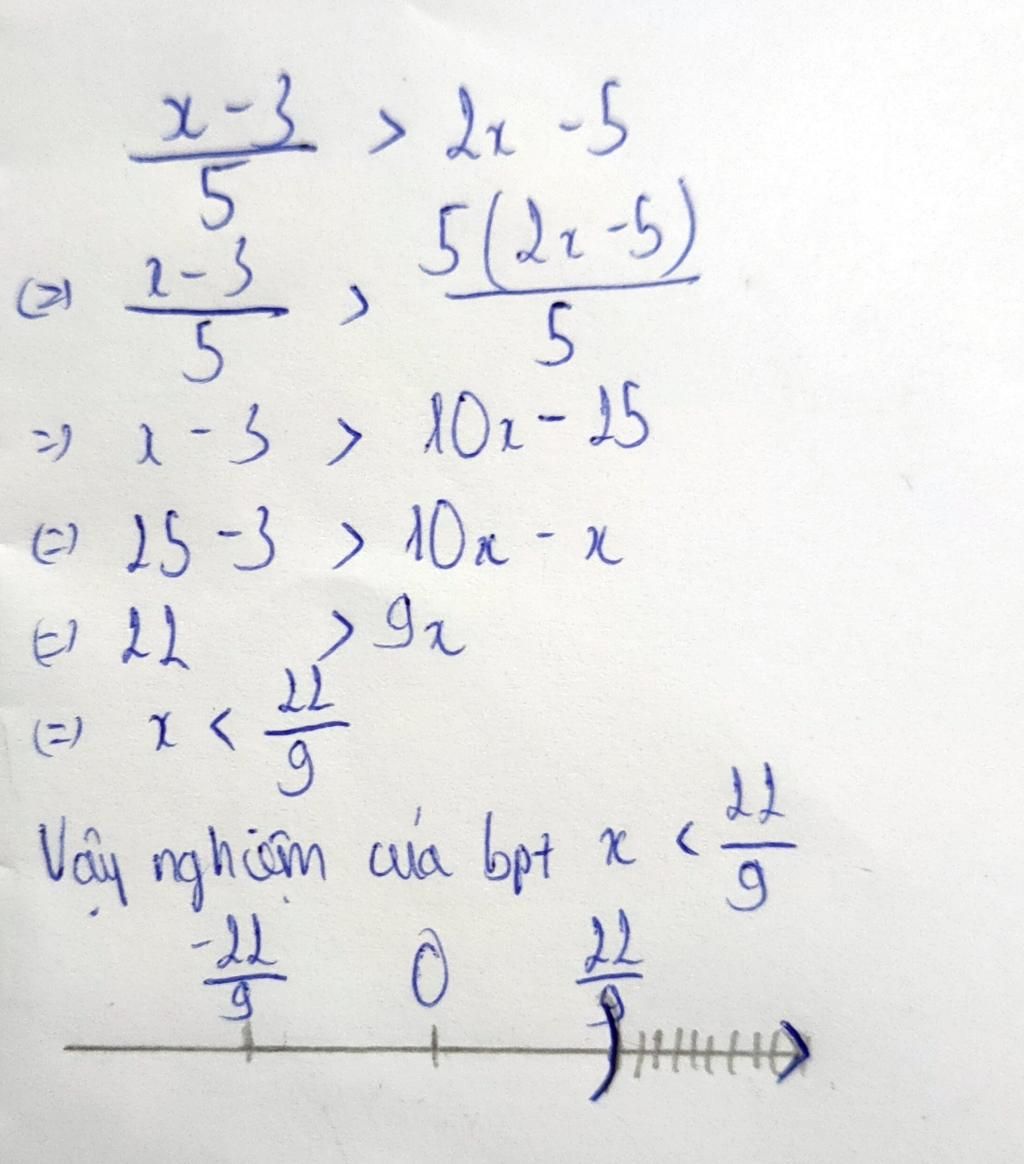 x - 3 / 5 > 2x - 5
(=) x - 3 / 5 > 5(2x - 5) / 5
=) x - 3 > 10x - 25
(=) 25 - 3 > 10x - x
(=) 22 > 9x
(=) x < 22 / 9
Vậy nghiệm của bpt x < 22 / 9
-22 / 9 0 22 / 9